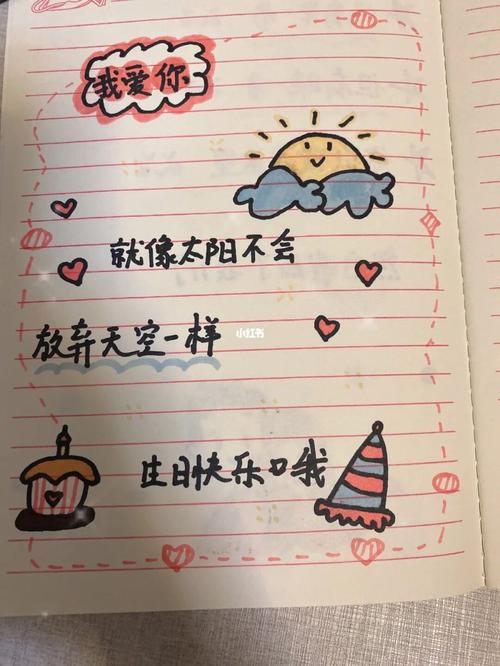 我爱你
就像太阳不会
小红书
放弃天空一样
生日快乐口我